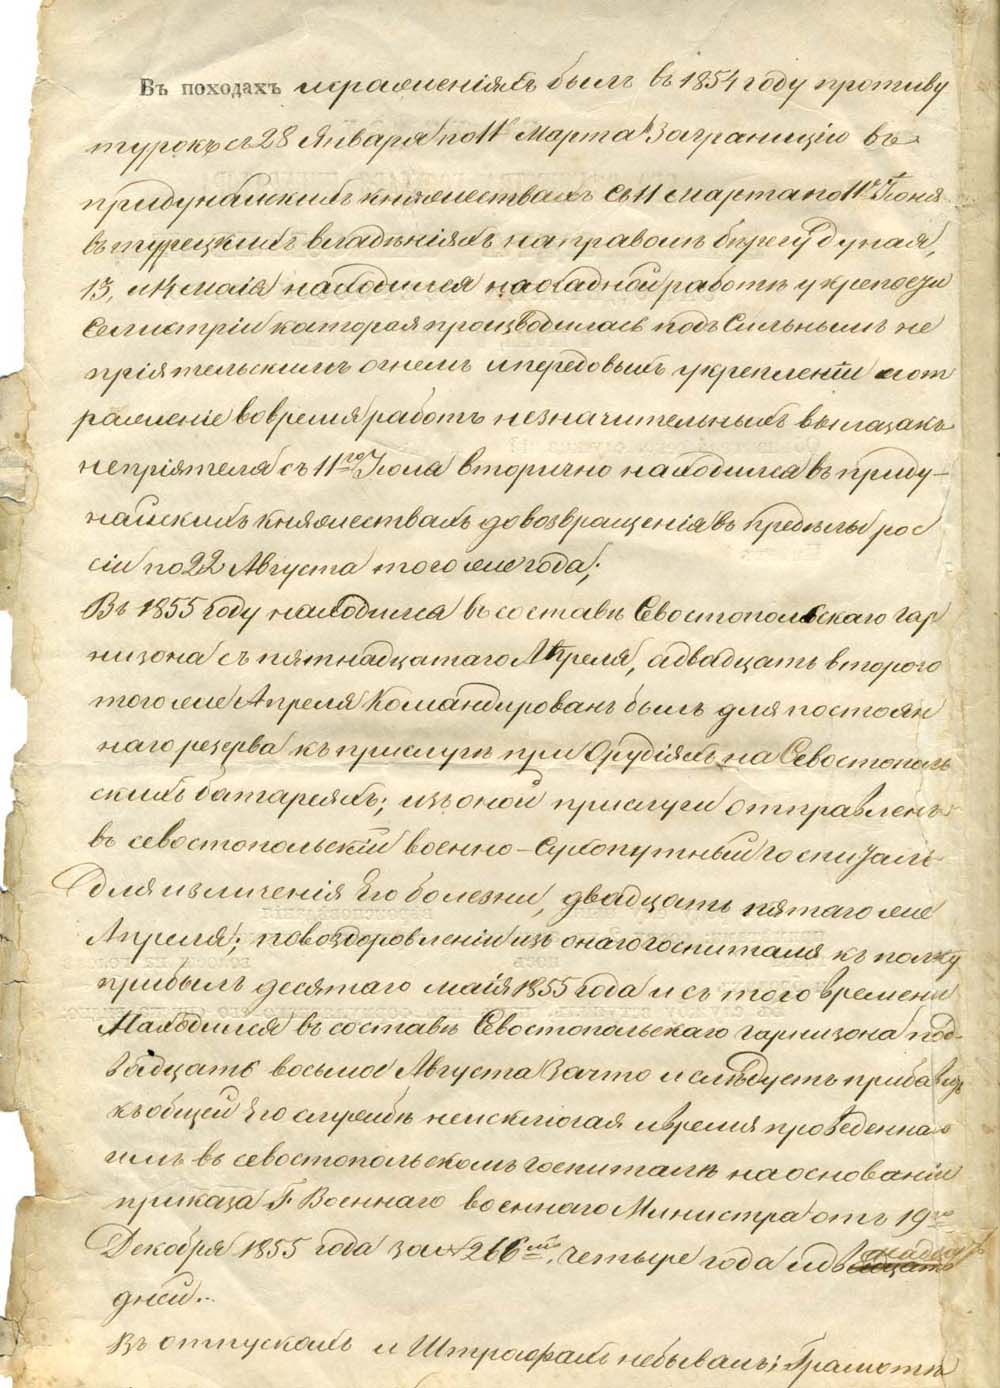 Въ походахъ исраженіяхъ былъ въ 1854 году противу
турокъ съ 28 Января по 11 Марта Заграницію въ
придунайскихъ княжествахъ съ 11 марта по 11е Іюня
въ турецкихъ владѣніяхъ на правомъ берегу дуная,
13, и 14 маія находился на осадной работѣ у крепости
Селистріи каторая производилась подъ Сильнымъ не
пріятельскимъ огнемъ ипередовыхъ укрепленій иот
раженіе вовремя работъ незначительныхъ вылазакъ
непріятеля съ 11го Іюля вторично находился въ приду-
найскихъ княжествахъ до возвращенія въ предѣлы рос
сіи по 22 Августа того же года;
Въ 1855 году находился въ составѣ Севостопольскаго гар
низона съ пятнадцатаго Апреля, адвадцать второго
того же Апреля Командированъ былъ для постоян
наго резерва къ прислугѣ при Орудіяхъ на Севостополь
скихъ батареяхъ; изъ оной прислуги отправленъ
въ севостопольскій военно-Сухопутный госпиталь
для излеченія Его болезни, двадцать пятаго же
Апреля; повоздоровленіи изъ онаго госпиталя къ полку
прибылъ десятаго маія 1855 года и съ того времени
Находился въ составѣ Севостопольскаго гарнизона по д-
вадцать восьмое Августа Зачто и слѣдуетъ прибавить
къ общей Его службѣ неисключая ивремя проведенная
имъ въ севостопольскомъ госпиталѣ на основаніи
приказа Г. Военнаго военнаго Министра отъ 19го
Декабря 1855 года за № 266мъ. четыре года и
дней..
Въ отпускахъ и Штрафахъ небывалъ; Грамотѣ